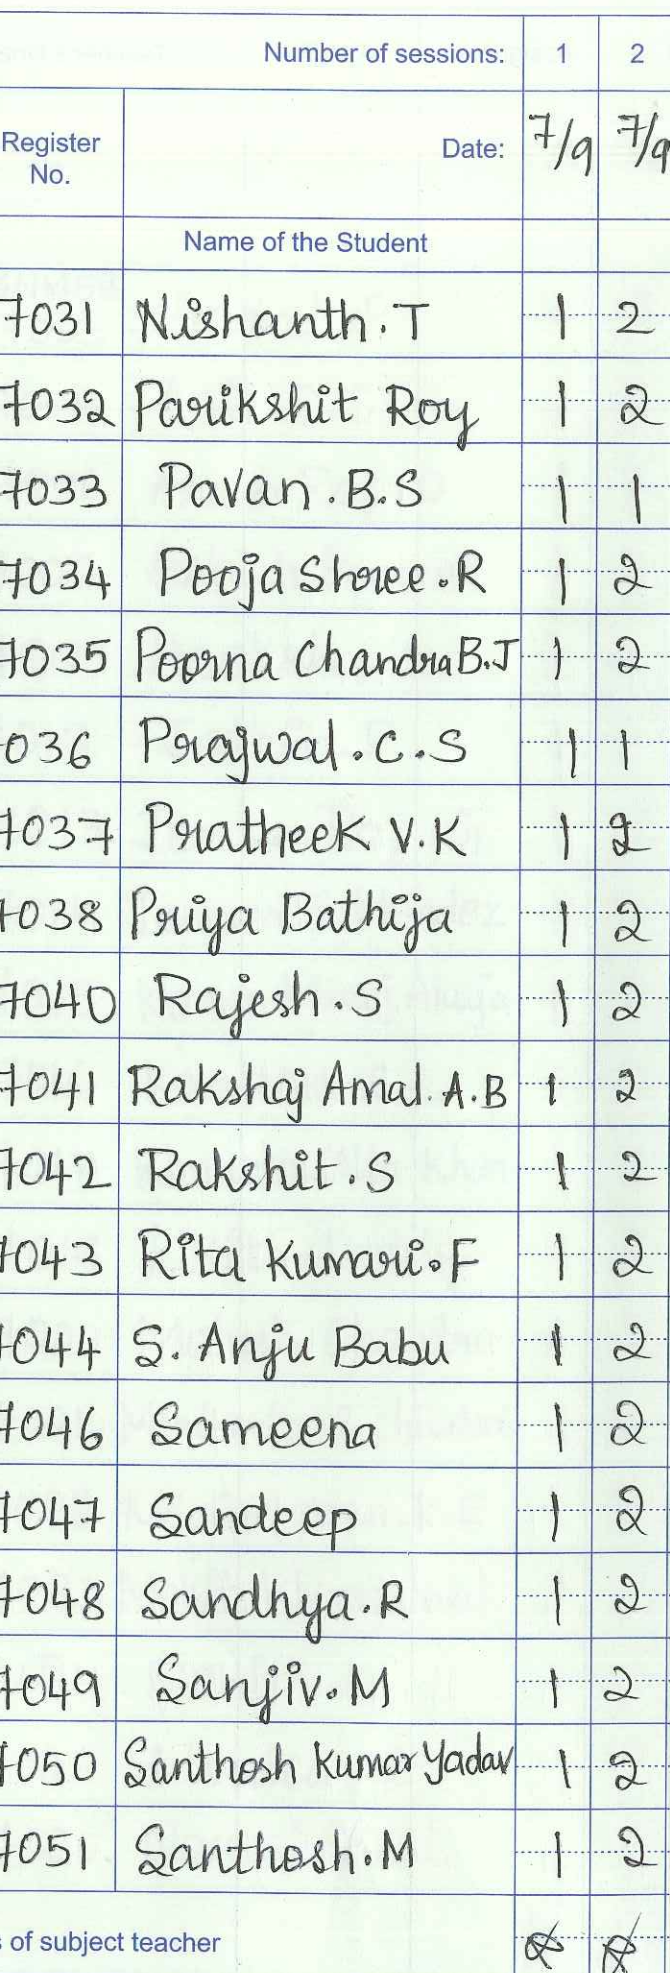 Number of sessions: 1 2
Register No. Date: 7/9 7/9
Name of the Student
7031 Nishanth.T 1 2
7032 Parikshit Roy 1 2
7033 Pavan.B.S 1 1
7034 Pooja Shree.R 1 2
7035 Poorna Chandra B.J 1 2
036 Prajwal.C.S 1 1
7037 Pratheek V.K 1 2
7038 Priya Bathija 1 2
7040 Rajesh.S 1 2
7041 Rakshaj Amal.A.B 1 2
7042 Rakshit.S 1 2
7043 Rita Kumari.F 1 2
7044 S. Anju Babu 1 2
7046 Sameena 1 2
7047 Sandeep 1 2
7048 Sandhya.R 1 2
7049 Sanjiv.M 1 2
7050 Santhosh Kumar Yadav 1 2
7051 Santhosh.M 1 2
s of subject teacher